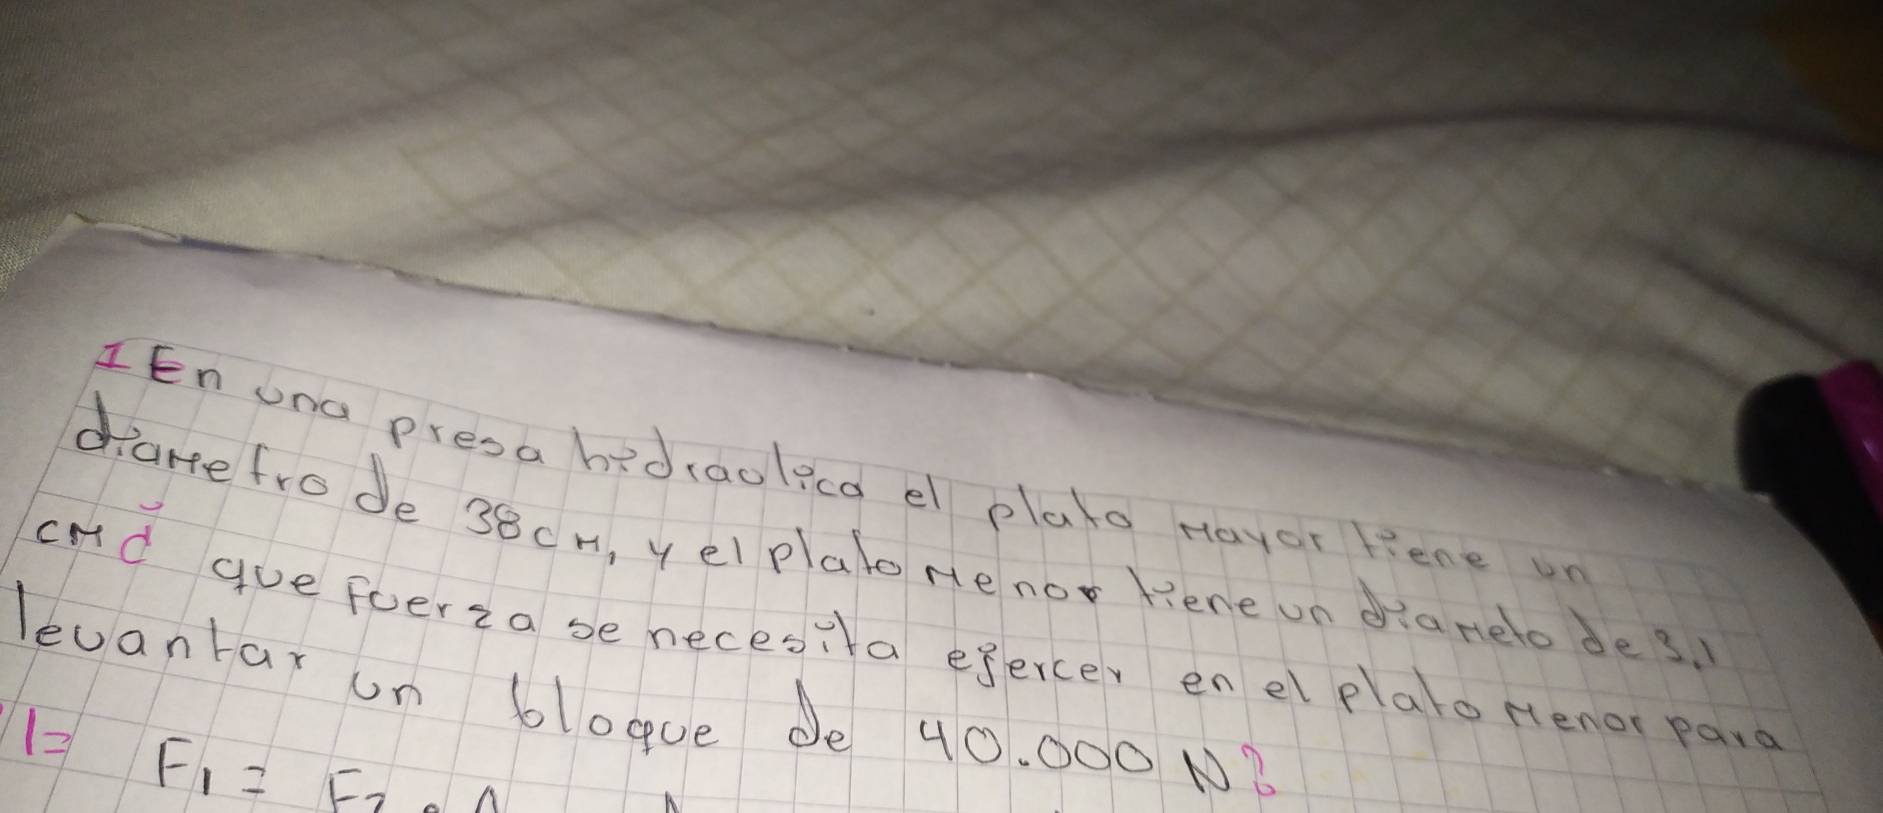 1 En una presa hidraolica el plato mayor tiene un
diametro de 38 cm, y el plato menor tiene un diameto de 3.1
cm ¿ que fuerza se necesita ejercer en el plato menor para
levantar un bloque de 40.000 N?
1= F1 = F2 .